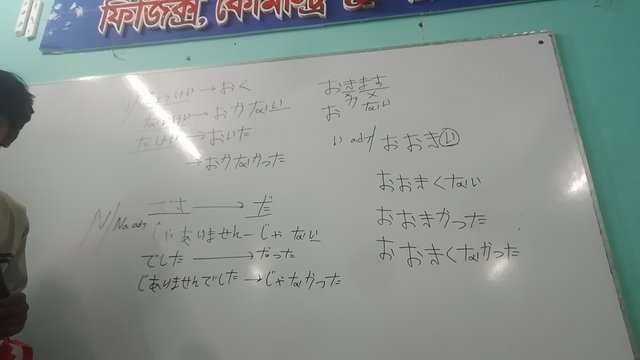 ফিজিক্স, কেমিস্ট্রি
→おく
ない けい→おかない
た けい→おいた
→おかなかった
N/Na adj
です→だ
じゃありません–じゃない
でした→だった
じありませんでした→じゃなかった
おきます
か
おかない
い adj/おおきい
おおきくない
おおきかった
おおきくなかった